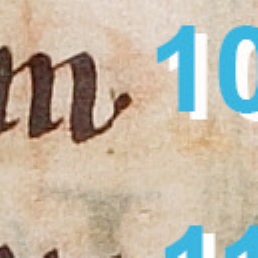 m 10
11